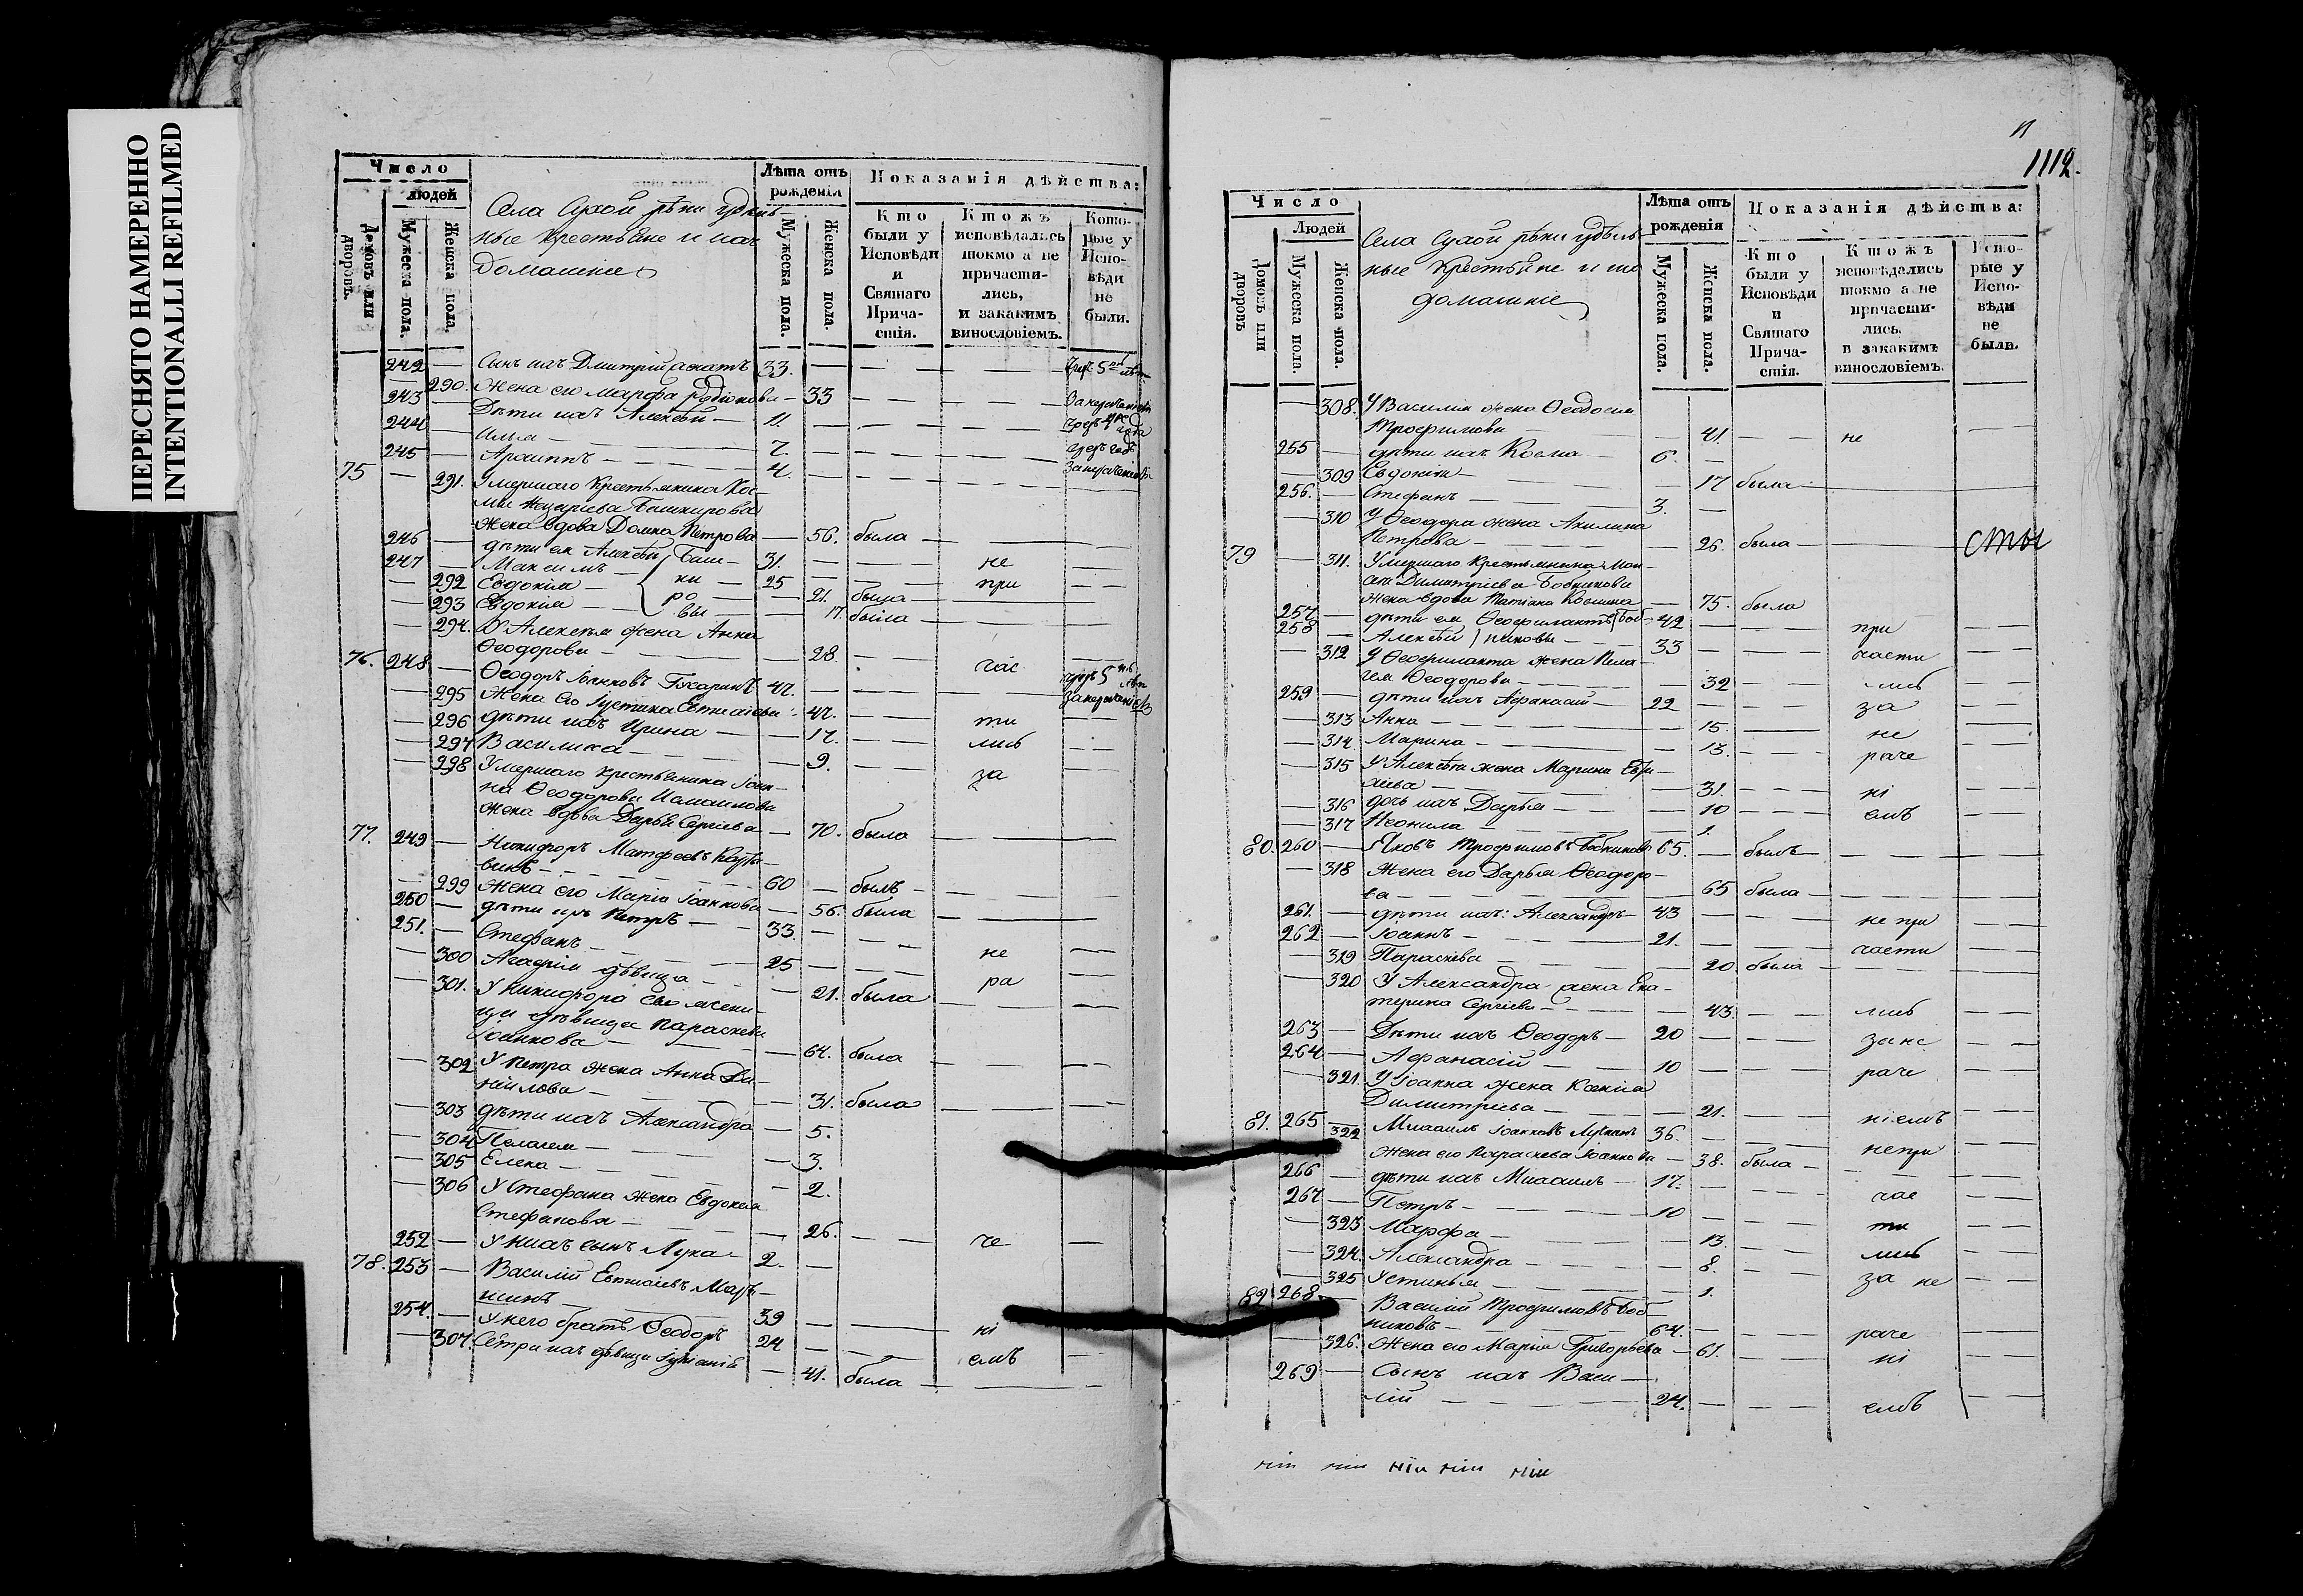 ПЕРЕСНЯТО НАМЕРЕННО
INTENTIONALLI REFILMED
Число
людей
Домовъ или дворовъ.
Мужеска пола.
Женска пола.
Села Сухой рѣки удѣль-
ные крестьяне и ихъ
домашніе
Лѣта отъ рожденія
Мужеска пола.
Женска пола.
Показанія дѣйства:
Кто были у Исповѣди и Святаго Прича-стія.
Ктожъ исповѣдались токмо а не причасти-лись, и закакимъ винословіемъ.
Кото-рые у Испо-вѣди не были.
242 — Сынъ ихъ Дмитрій 33. — — — —
290. Жена его Марфа Родіонова — 33 — — — —
243 Дѣти ихъ Алексѣй — 11. — — — —
244 — Илья — 7. — — — —
245 — Архиппъ — 4. — — — —
75 — 291. Умершаго крестьянина Кос-
мы Башкирова
жена вдова Домна Петрова — 56. была —
246 — дѣти ея Алексѣй Баш- 31. — — не —
247 — Максимъ — ки 25 — — при —
— 292 Евдокія — ро — 21. была —
— 293 Евдокія — вы — 17. была —
— 294. У Алексѣя жена Анна
Ѳеодорова — 28. — час —
76. 248 — Ѳеодоръ Іоанновъ Гусаринъ 47. — —
— 295 Жена его Іустина Евтихіева — 47. — ти —
— 296 дѣти ихъ Ирина — 17. — лись —
— 297 Василиса — 9. — за
— 298 Умершаго крестьянина Іоан-
на Ѳеодорова Исмаилова
жена вдова Дарья Сергіева — 70. была —
77. 249 — Никифоръ Матфеевъ
винъ — 60 — былъ —
— 299 Жена его Марія Іоаннова — 56. была —
250 — дѣти ихъ Петръ — 33. —
251. — Стефанъ — 25 — не —
— 300 Агафія дѣвица — 21. была ра —
— 301. У Никифора
дѣвица Параскева
Іоаннова — 64. была —
— 302 У Петра жена Анна Да-
ніилова — 31. была —
— 303 дѣти ихъ Александра — 5.
— 304 Пелагея — 3.
— 305 Елена — 2.
— 306 У Стефана жена Евдокія
Стефанова — 26. — че —
252 — У нихъ сынъ Лука — 2. —
78. 253 — Василій Евтихіевъ Марь-
шинъ — 39 — ні —
254. — У него братъ Ѳеодоръ 24 — емъ —
— 307. Сестра ихъ дѣвица — 41. была —
1112.
Число
Людей
Домовъ или дворовъ
Мужеска пола.
Женска пола.
Села Сухой рѣки удѣль-
ные крестьяне и их
домашніе
Лѣта отъ рожденія
Мужеска пола.
Женска пола.
Показанія дѣйства:
Кто были у Исповѣди и Святаго Прича-стія.
Ктожъ исповѣдались токмо а не причасти-лись, и закакимъ винословіемъ.
Кото-рые у Испо-вѣди не были.
— 308. У Василія жена Ѳеодосія
Трофимова — 41. — не —
255 — дѣти ихъ Косма — 6.
— 309 Евдокія — 17 была —
256. — Стефанъ — 3. —
— 310 У Ѳеодора жена Акилина
Петрова — 26. была — сты
79 — 311. Умершаго крестьянина
Димитріева Бобникова
жена вдова Татіана Космина — 75. была
257 — дѣти ея Ѳеофилактъ Боб- 42 — при —
258 — Алексѣй никовы — 33 — части —
— 312 У Ѳеофилакта жена Пела-
гея Ѳеодорова — 32 — лись —
259 — дѣти ихъ Афанасій — 22 — за —
— 313 Анна — 15. — не —
— 314. Марина — 13. — раче —
— 315 У Алексѣя жена Марина
— 31. — ні —
— 316 дочь ихъ Дарья — 10 — емъ —
— 317 Неонила — 1.
80. 260 — Яковъ Трофимовъ Бобниковъ 65. — былъ —
— 318 Жена его Дарья Ѳеодоро-
ва — 65 была —
261. — дѣти ихъ: Александръ — 43 — не при —
262 — Іоаннъ — 21. — части —
— 319 Параскева — 20. была —
— 320 У Александра жена Ека-
терина Сергіева — 43. — лись —
263 — Дѣти ихъ Ѳеодоръ — 20 — за не —
264 — Афанасій — 10 — раче —
— 321. У Іоанна жена Ксенія
Димитріева — 21. — ніемъ —
81. 265 — Михаилъ Іоанновъ 36. — непри —
— 322 Жена его Параскева Іоаннова — 38. была —
266 — дѣти ихъ Михаилъ — 17. — час —
267 — Петръ — 10 — ти —
— 323 Марфа — 13. — лись —
— 324. Александра — 8. — за не —
— 325 Устинья — 1.
82 268 — Василій Трофимовъ Боб-
никовъ — 64. — раче —
— 326. Жена его Марія Григорьева — 61. — ні —
269 — Сынъ ихъ Васи-
лій — 24. — емъ —